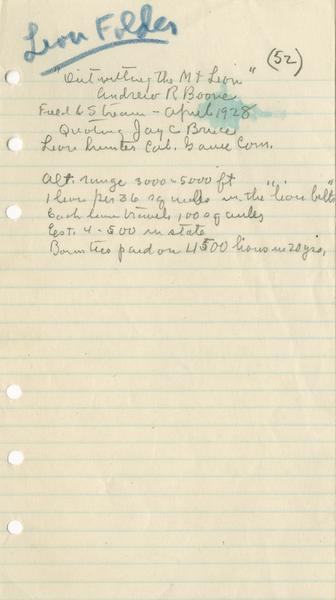 Lion Folder
(52)
"Outwitting the Mt Lion"
Andrew R Boone
Field & Stream - April 1928
Quoting Jay C Bruce
Lion hunter Cal. Game Com.
Alt. range 3000-5000 ft
1 lion per 36 sq miles in the "lion belt"
Each lion travels 100 sq miles
Est. 4-500 in state
Bounties paid on 4500 lions in 20 yrs,